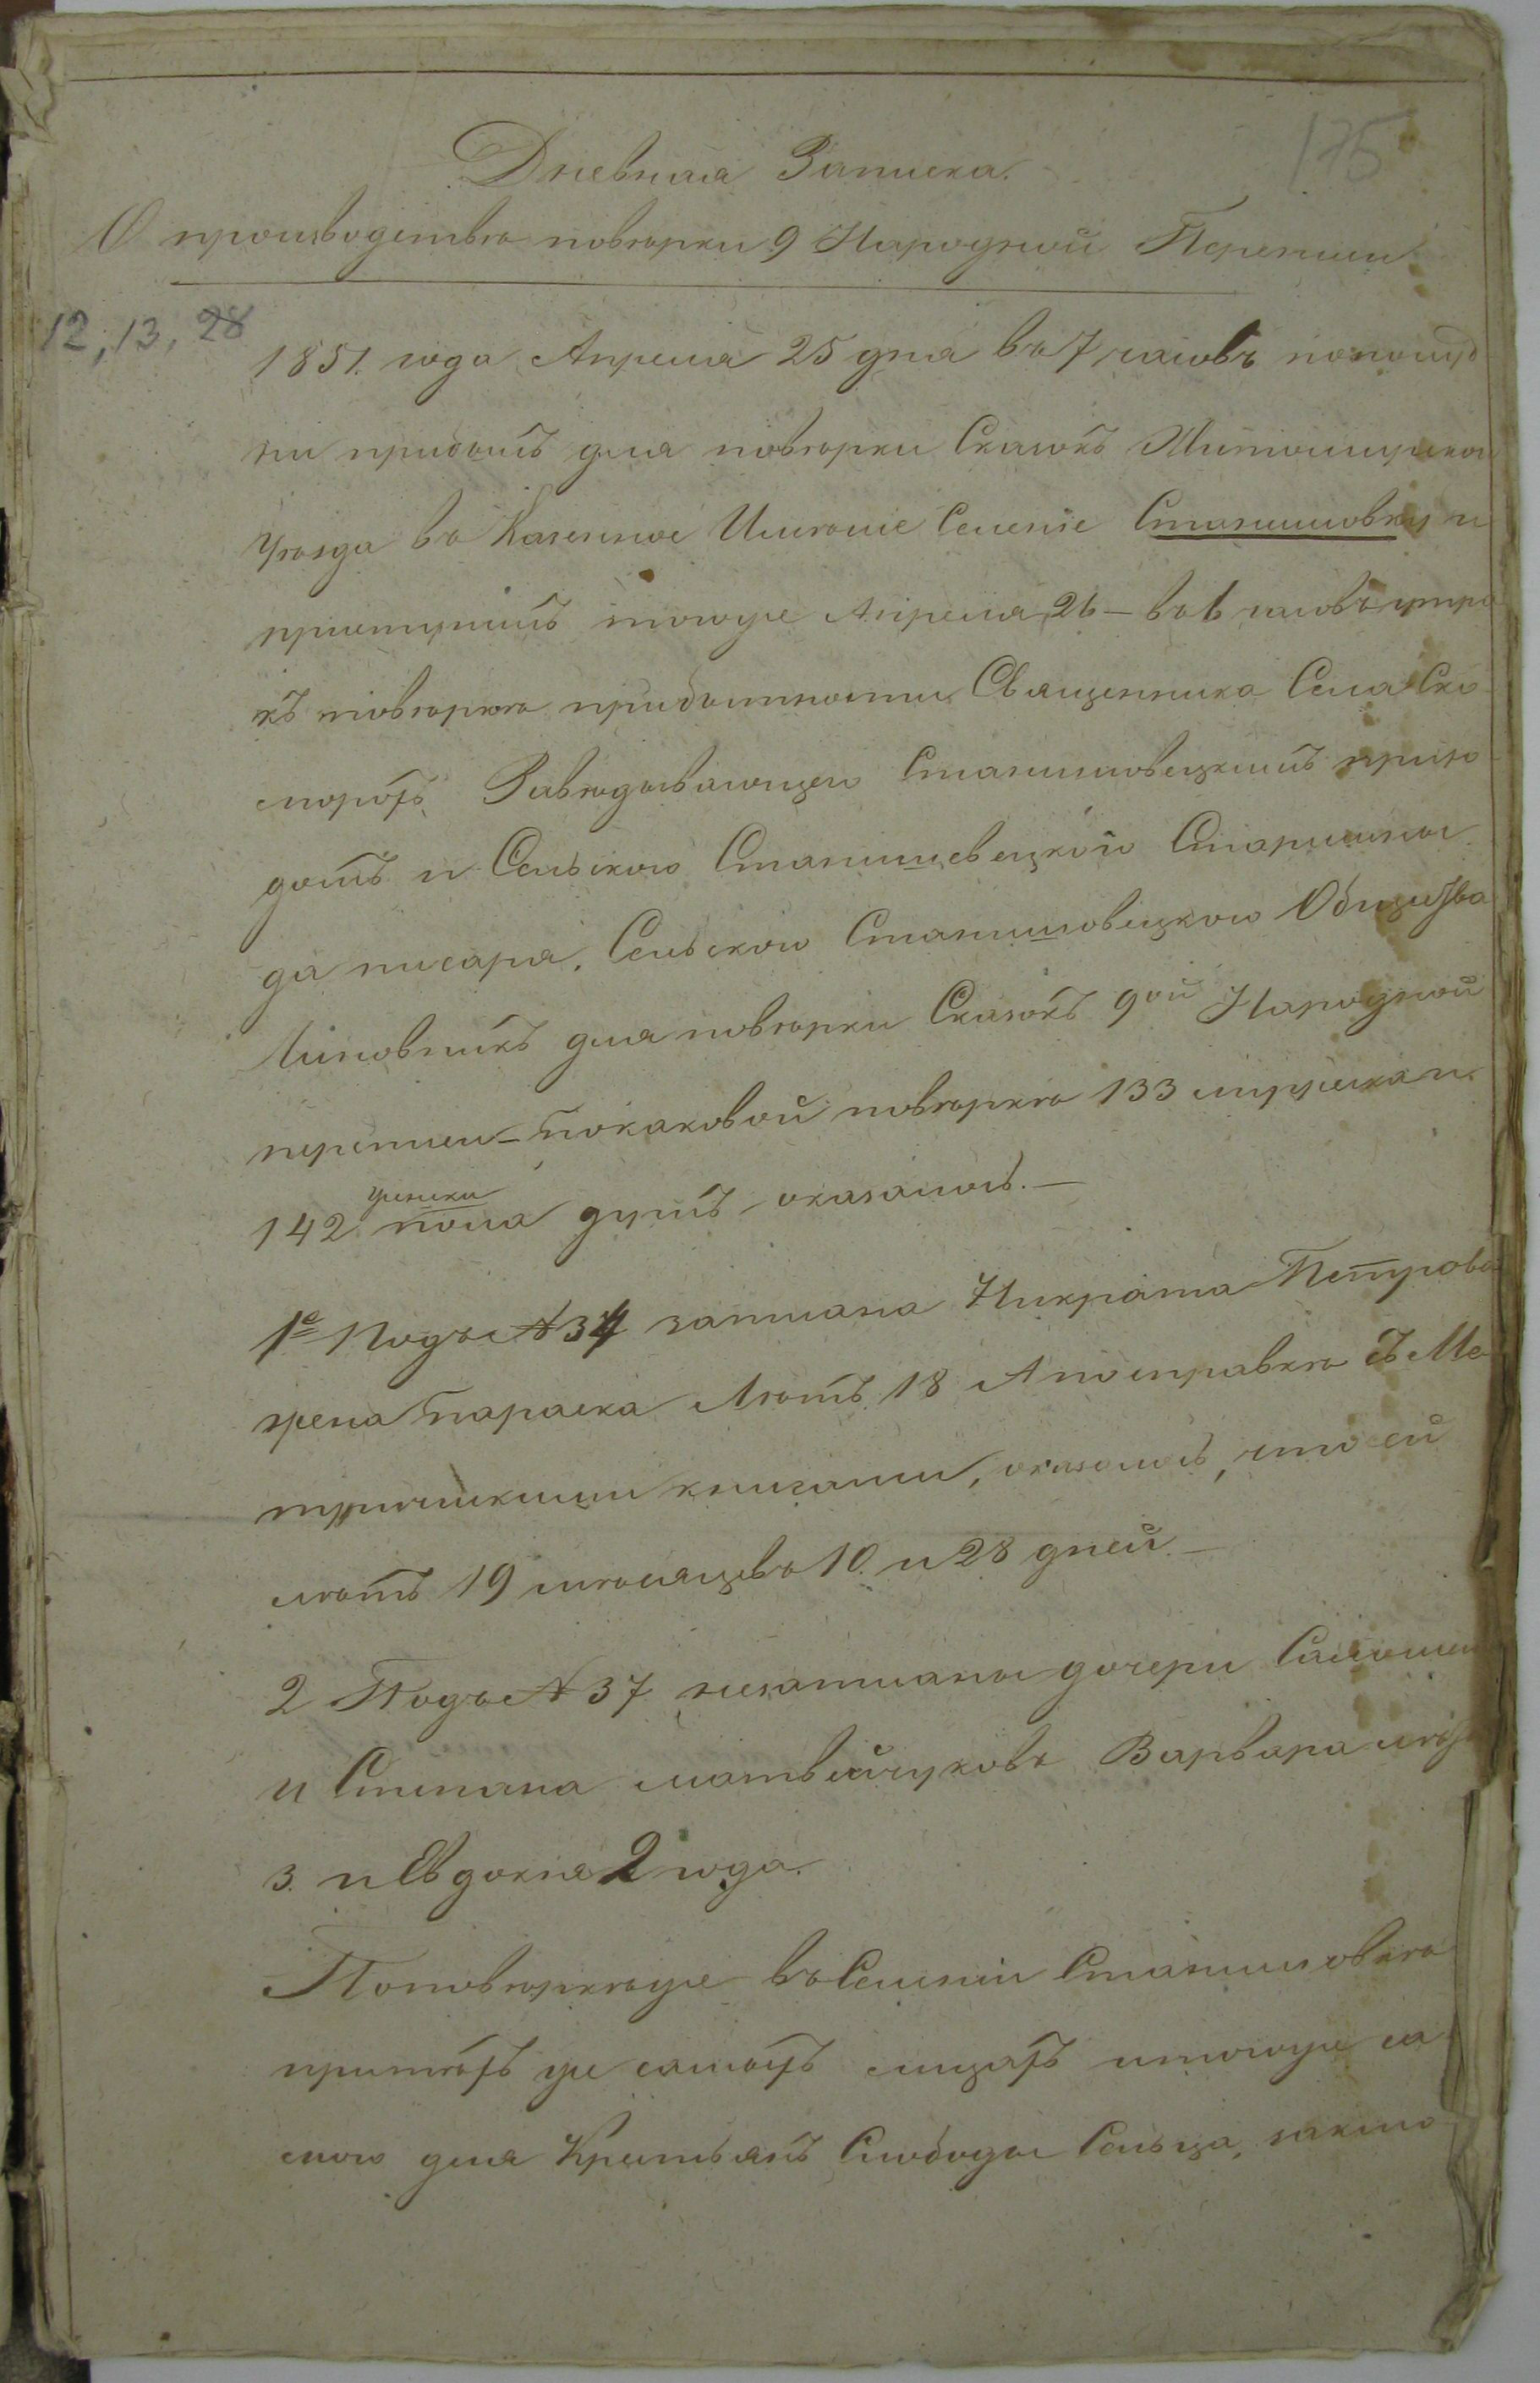 175
Дневная Записка.
О производствѣ повѣрки 9 Народной Переписи
12, 13, 28
1851. года Апреля 25 дня въ 7 часовъ пополуд
ни прибылъ для повѣрки Сказокъ Житомирскаго
уѣзда въ Казенное Имѣніе Селеніе Станишовку и
приступилъ тогоже Апреля 26 – въ 6 часовъ утра
къ повѣркѣ прибытности Священника Села Ско
морохъ Завѣдывающего Станишовецкимъ прихо
домъ и Сельского Станишовецкого Старшины
да писаря, Сельского Станишовецкого Общества
Чиновникъ для повѣрки Сказокъ 9ой Народной
переписи – покаковой повѣркѣ 133 мужеска и
142 женска пола душъ оказалось. –
1е Подъ № 34 записана Никрата Петрова
жена Параска Лѣтъ 18 А посправкѣ съ Ме
трическими книгами, оказалось, что ей
лѣтъ 19 мѣсяцевъ 10. и 28 дней. –
2 Подъ № 37 незаписаны дочери
и Степана Матвейчуковъ Варвара лѣтъ
3. и Евдокія 2 года.
Поповѣркѣже въ Селеніи Станишовкѣ
притѣхъ же самыхъ лицахъ итогоже са
мого дня Крестьянъ Слободы Сельца,